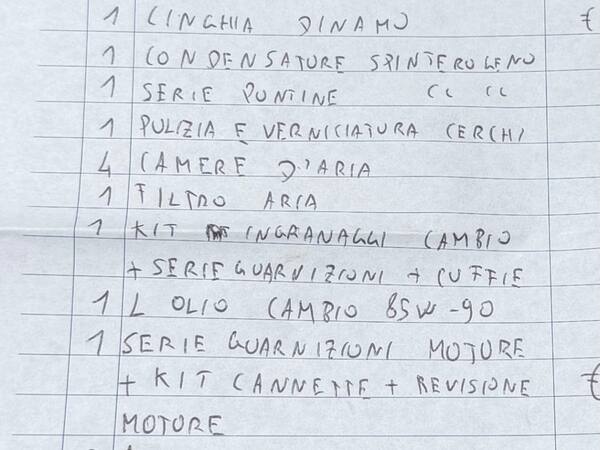 1 CINGHIA DINAMO €
1 CONDENSATORE SPINTEROGENO
1 SERIE PUNTINE " "
1 PULIZIA E VERNICIATURA CERCHI
4 CAMERE D'ARIA
1 FILTRO ARIA
1 KIT INGRANAGGI CAMBIO
+ SERIE GUARNIZIONI + CUFFIE
1 L OLIO CAMBIO 85W-90
1 SERIE GUARNIZIONI MOTORE
+ KIT CANNETTE + REVISIONE €
MOTORE